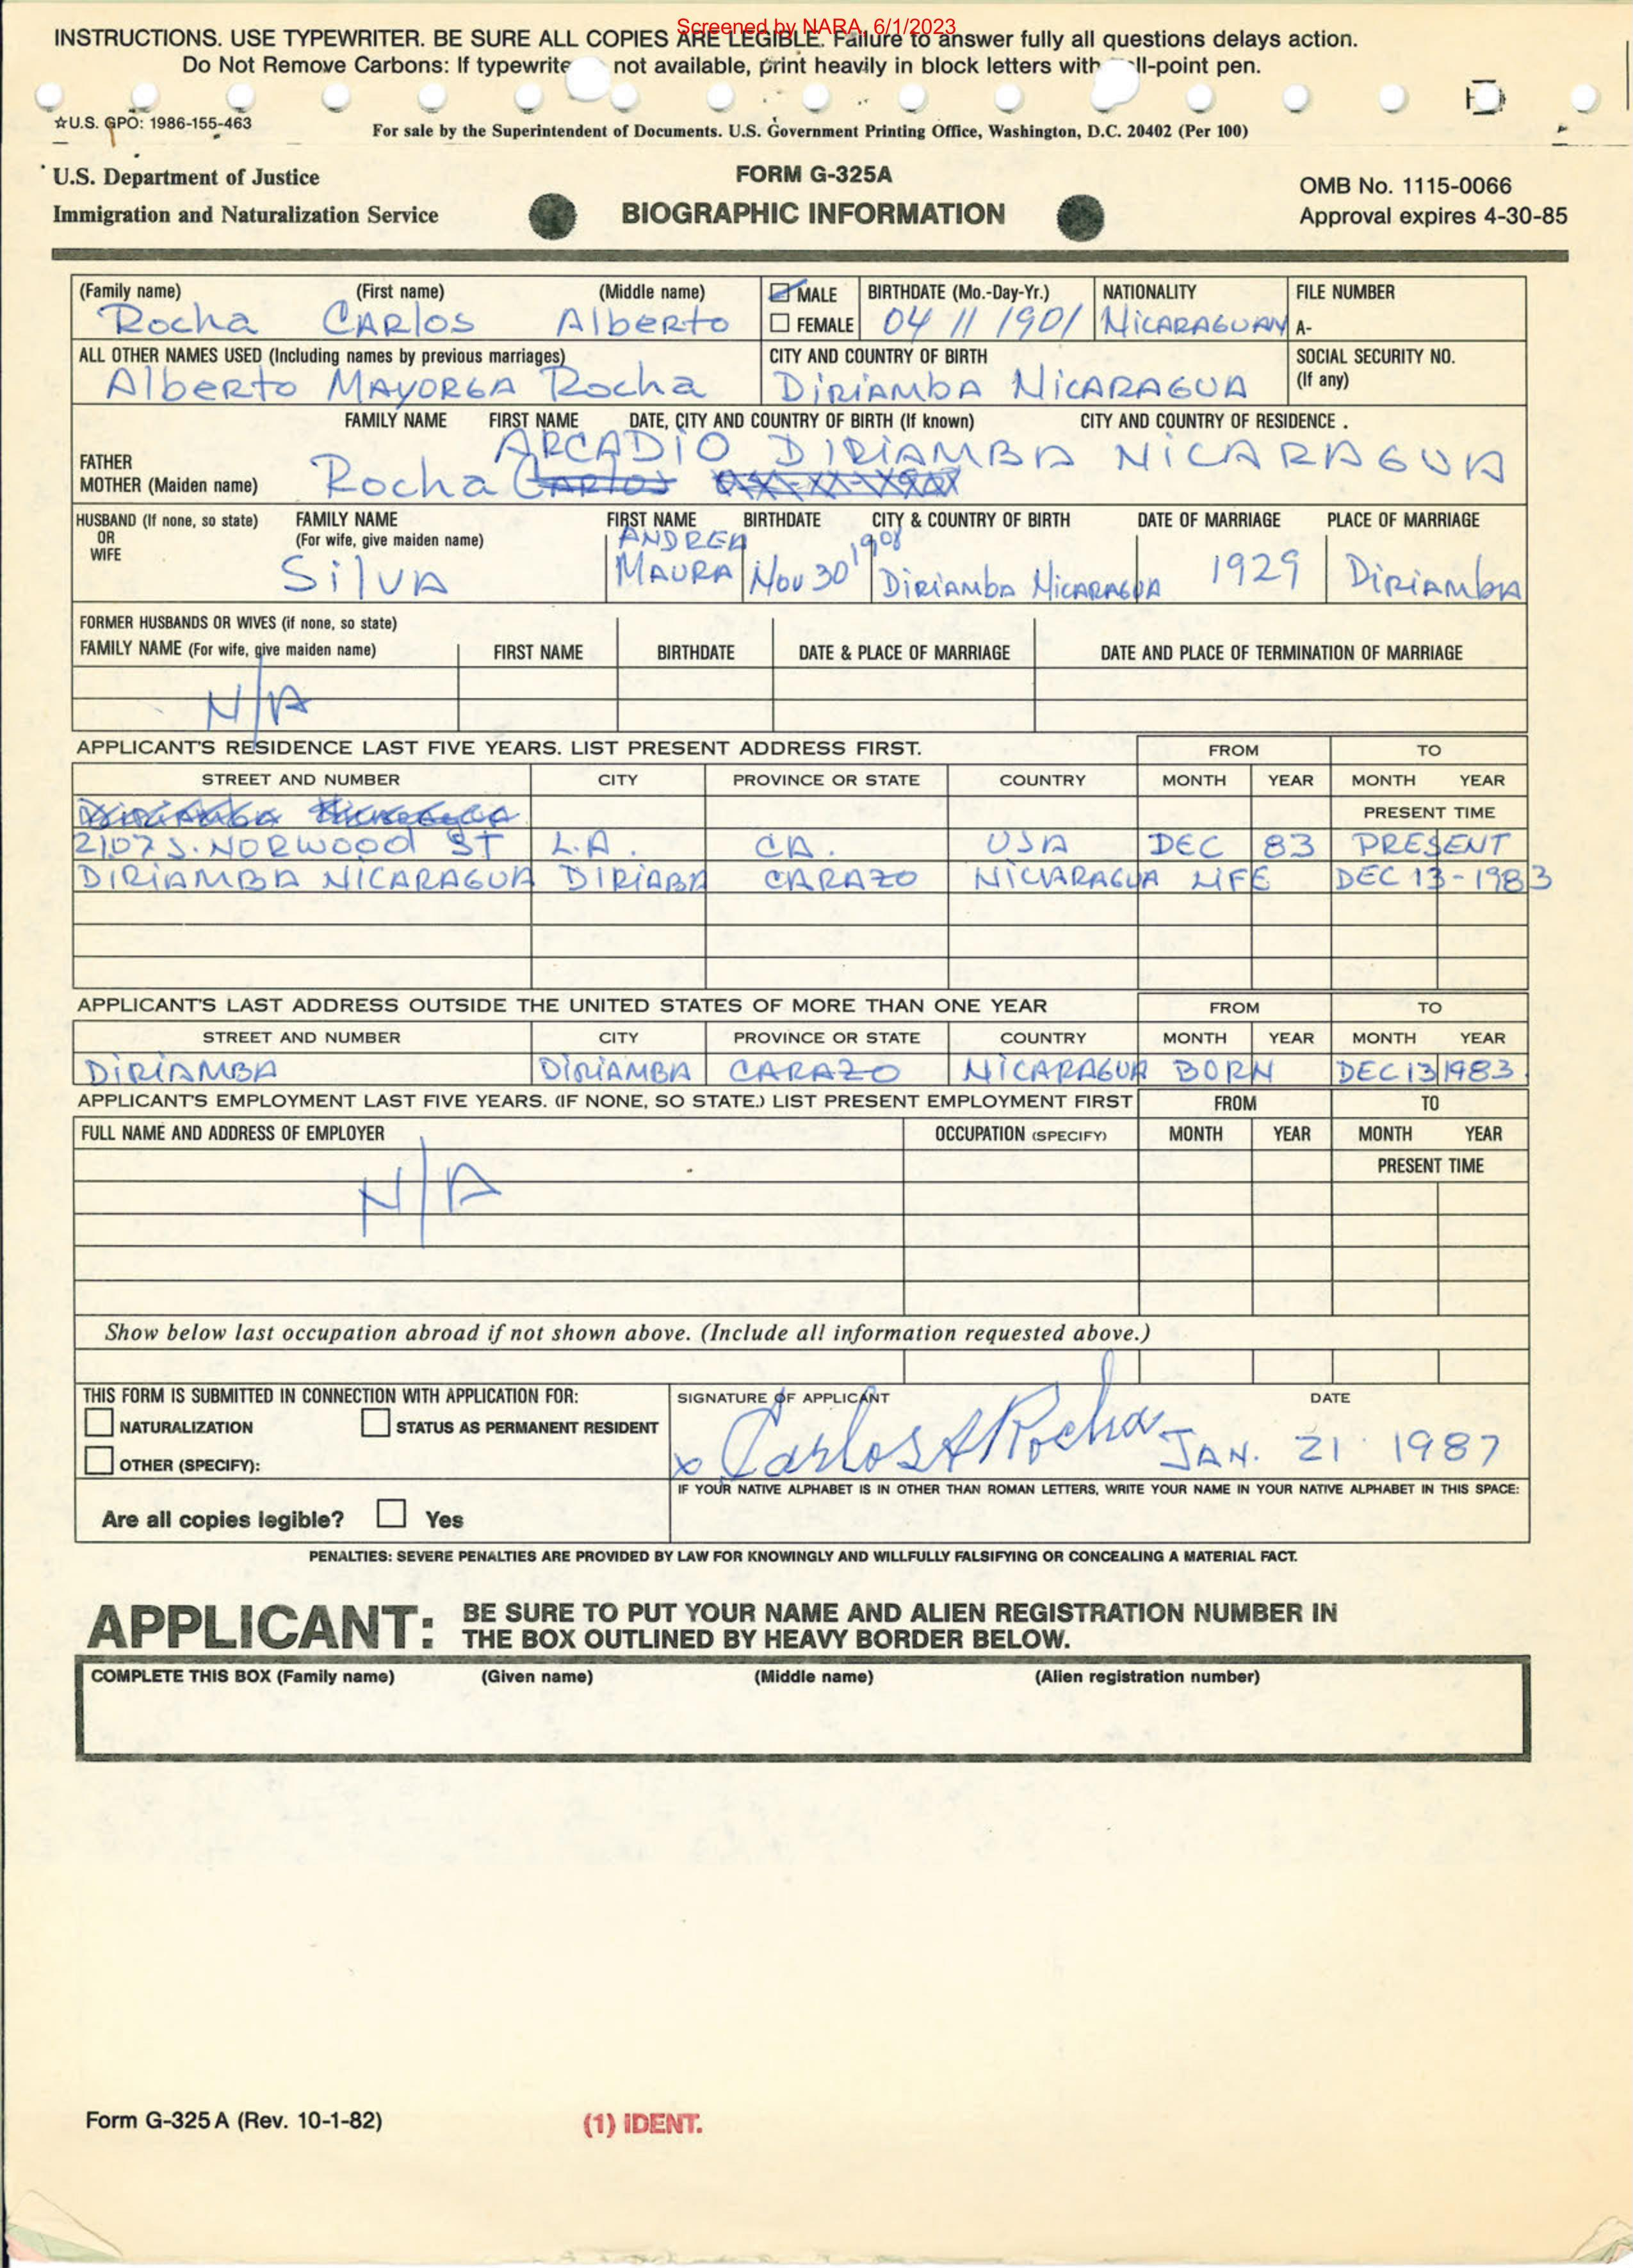 Screened by NARA, 6/1/2023
INSTRUCTIONS. USE TYPEWRITER. BE SURE ALL COPIES ARE LEGIBLE. Failure to answer fully all questions delays action.
Do Not Remove Carbons: If typewrite not available, print heavily in block letters with ll-point pen.
☆U.S. GPO: 1986-155-463
For sale by the Superintendent of Documents. U.S. Government Printing Office, Washington, D.C. 20402 (Per 100)
U.S. Department of Justice
Immigration and Naturalization Service
FORM G-325A
BIOGRAPHIC INFORMATION
OMB No. 1115-0066
Approval expires 4-30-85
(Family name) (First name) (Middle name) MALE BIRTHDATE (Mo.-Day-Yr.) NATIONALITY FILE NUMBER
Rocha CARlos Alberto FEMALE 04 11 1901 NiCARAGUAN A-
ALL OTHER NAMES USED (Including names by previous marriages) CITY AND COUNTRY OF BIRTH SOCIAL SECURITY NO.
(If any)
Alberto MAYORGA Rocha DiRiAMbA NiCARAGUA
FAMILY NAME FIRST NAME DATE, CITY AND COUNTRY OF BIRTH (If known) CITY AND COUNTRY OF RESIDENCE .
ARCADiO DIRiAMBA NiCARAGUA
FATHER
MOTHER (Maiden name) Rocha Carlos
HUSBAND (If none, so state) FAMILY NAME FIRST NAME BIRTHDATE CITY & COUNTRY OF BIRTH DATE OF MARRIAGE PLACE OF MARRIAGE
OR (For wife, give maiden name) ANDREA 1908
WIFE
SilVA MAURA Nov 30 DiRiAMbA NiCARAGUA 1929 DiRiAMbA
FORMER HUSBANDS OR WIVES (if none, so state)
FAMILY NAME (For wife, give maiden name) FIRST NAME BIRTHDATE DATE & PLACE OF MARRIAGE DATE AND PLACE OF TERMINATION OF MARRIAGE
N/A
APPLICANT'S RESIDENCE LAST FIVE YEARS. LIST PRESENT ADDRESS FIRST. FROM TO
STREET AND NUMBER CITY PROVINCE OR STATE COUNTRY MONTH YEAR MONTH YEAR
PRESENT TIME
2107 S. NORWOOD ST L.A. CA. USA DEC 83 PRESENT
DIRiAMBA NICARAGUA DIRIABA CARAZO NICVARAGUA LIFE DEC 13-1983
APPLICANT'S LAST ADDRESS OUTSIDE THE UNITED STATES OF MORE THAN ONE YEAR FROM TO
STREET AND NUMBER CITY PROVINCE OR STATE COUNTRY MONTH YEAR MONTH YEAR
DiRiAMBA DiRiAMBA CARAZO NiCARAGUA BORN DEC 13 1983
APPLICANT'S EMPLOYMENT LAST FIVE YEARS. (IF NONE, SO STATE.) LIST PRESENT EMPLOYMENT FIRST FROM TO
FULL NAME AND ADDRESS OF EMPLOYER OCCUPATION (SPECIFY) MONTH YEAR MONTH YEAR
PRESENT TIME
N/A
Show below last occupation abroad if not shown above. (Include all information requested above.)
THIS FORM IS SUBMITTED IN CONNECTION WITH APPLICATION FOR: SIGNATURE OF APPLICANT DATE
NATURALIZATION STATUS AS PERMANENT RESIDENT
x Carlos A Rocha JAN. 21 1987
OTHER (SPECIFY):
IF YOUR NATIVE ALPHABET IS IN OTHER THAN ROMAN LETTERS, WRITE YOUR NAME IN YOUR NATIVE ALPHABET IN THIS SPACE:
Are all copies legible? Yes
PENALTIES: SEVERE PENALTIES ARE PROVIDED BY LAW FOR KNOWINGLY AND WILLFULLY FALSIFYING OR CONCEALING A MATERIAL FACT.
APPLICANT: BE SURE TO PUT YOUR NAME AND ALIEN REGISTRATION NUMBER IN
THE BOX OUTLINED BY HEAVY BORDER BELOW.
COMPLETE THIS BOX (Family name) (Given name) (Middle name) (Alien registration number)
Form G-325 A (Rev. 10-1-82)
(1) IDENT.